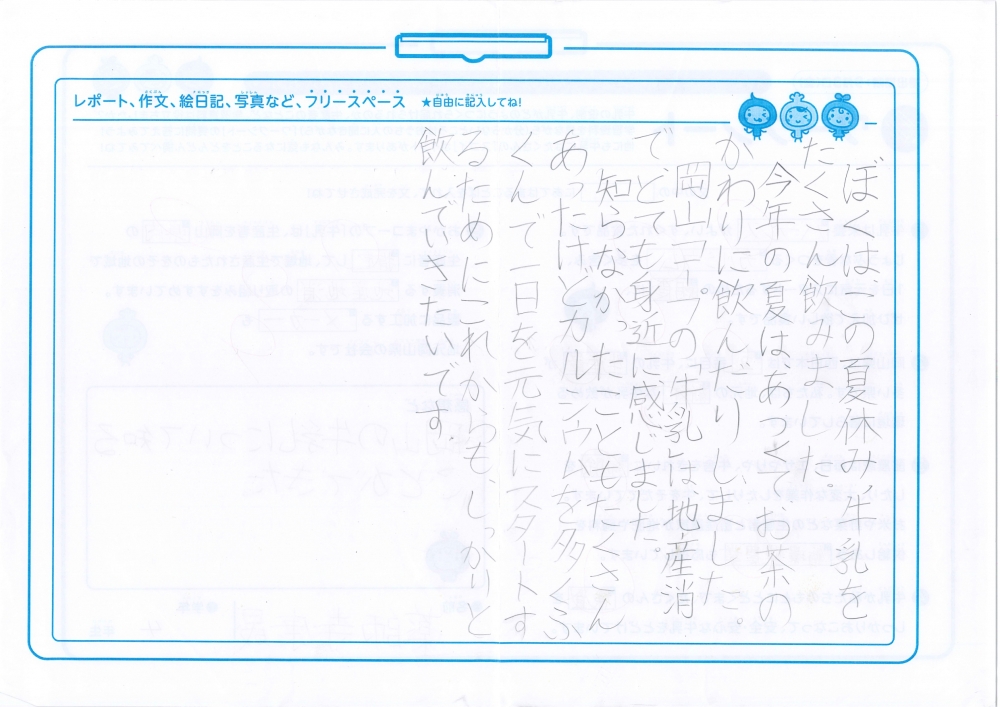 レポート、作文、絵日記、写真など、フリースペース ★自由に記入してね!
ぼくはこの夏休み、牛乳を
たくさん飲みました。
今年の夏はあつくてお茶の
かわりに飲んだりしました。
岡山コープの「牛乳」は地産消
でとても身近に感じました。
知らなかったこともたくさん
あったけどカルシウムを多くふ
くんで一日を元気にスタートす
るためにこれからも、しっかりと
飲んでいきたいです。